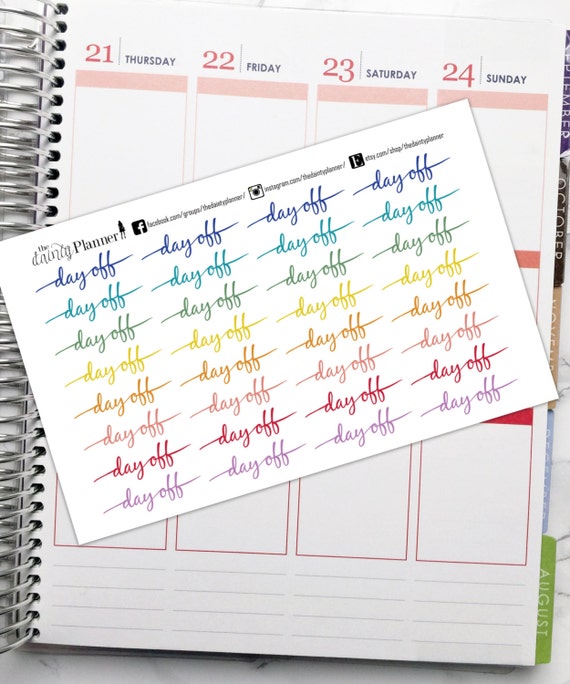 21 THURSDAY 22 FRIDAY 23 SATURDAY 24 SUNDAY
the dainty Planner
facebook.com/groups/thedaintyplanner/
instagram.com/thedaintyplanner/
etsy.com/shop/thedaintyplanner
day off day off day off day off
day off day off day off day off
day off day off day off day off
day off day off day off day off
day off day off day off day off
day off day off day off day off
day off day off day off day off
day off day off day off day off
SEPTEMBER
OCTOBER
AUGUST